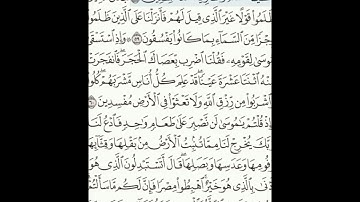 ظَلَمُوا۟ قَوْلًا غَيْرَ ٱلَّذِى قِيلَ لَهُمْ فَأَنزَلْنَا عَلَى ٱلَّذِينَ ظَلَمُوا۟
رِجْزًا مِّنَ ٱلسَّمَآءِ بِمَا كَانُوا۟ يَفْسُقُونَ ۝٥٩ وَإِذِ ٱسْتَسْقَىٰ
مُوسَىٰ لِقَوْمِهِۦ فَقُلْنَا ٱضْرِب بِّعَصَاكَ ٱلْحَجَرَ ۖ فَٱنفَجَرَتْ
مِنْهُ ٱثْنَتَا عَشْرَةَ عَيْنًا ۖ قَدْ عَلِمَ كُلُّ أُنَاسٍ مَّشْرَبَهُمْ ۖ كُلُوا۟
وَٱشْرَبُوا۟ مِن رِّزْقِ ٱللَّهِ وَلَا تَعْثَوْا۟ فِى ٱلْأَرْضِ مُفْسِدِينَ ۝٦٠
وَإِذْ قُلْتُمْ يَٰمُوسَىٰ لَن نَّصْبِرَ عَلَىٰ طَعَامٍ وَٰحِدٍ فَٱدْعُ لَنَا
رَبَّكَ يُخْرِجْ لَنَا مِمَّا تُنۢبِتُ ٱلْأَرْضُ مِنۢ بَقْلِهَا وَقِثَّآئِهَا
وَفُومِهَا وَعَدَسِهَا وَبَصَلِهَا ۖ قَالَ أَتَسْتَبْدِلُونَ ٱلَّذِى هُوَ
أَدْنَىٰ بِٱلَّذِى هُوَ خَيْرٌ ۚ ٱهْبِطُوا۟ مِصْرًا فَإِنَّ لَكُم مَّا سَأَلْتُمْ